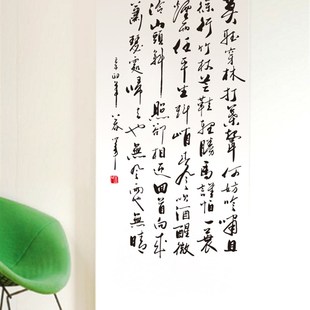 莫聽穿林打葉聲何妨吟嘯且
徐行竹杖芒鞋輕勝馬誰怕一蓑
煙雨任平生料峭春風吹酒醒微
冷山頭斜照却相迎回首向來
蕭瑟處歸去也無風雨也無晴